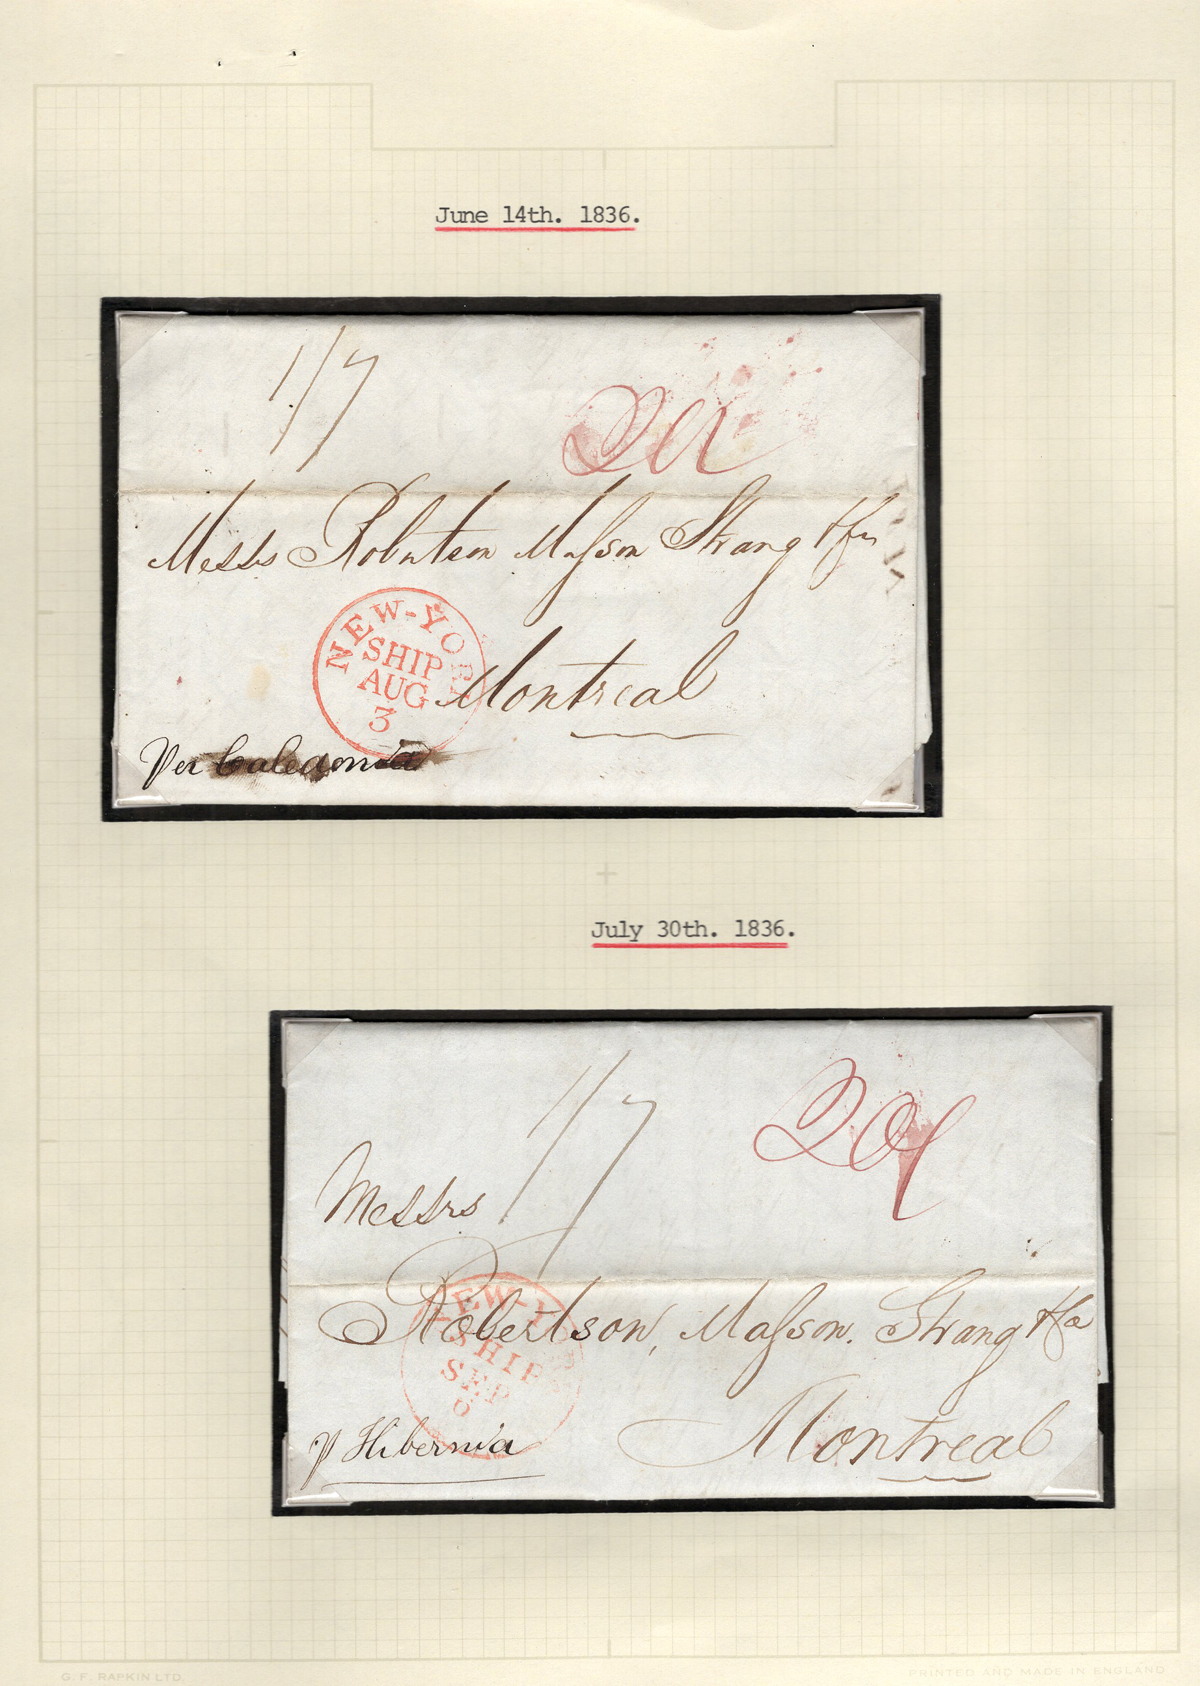 June 14th. 1836.
1/7
Messrs Robertson Masson Strang & Co
NEW-YORK
SHIP
AUG
3
Montreal
Per Caledonia
July 30th. 1836.
1/7
Messrs
Robertson, Masson. Strang & Co
NEW-YORK
SHIP
SEP
Montreal
p Hibernia
G. F. RAPKIN LTD.
PRINTED AND MADE IN ENGLAND